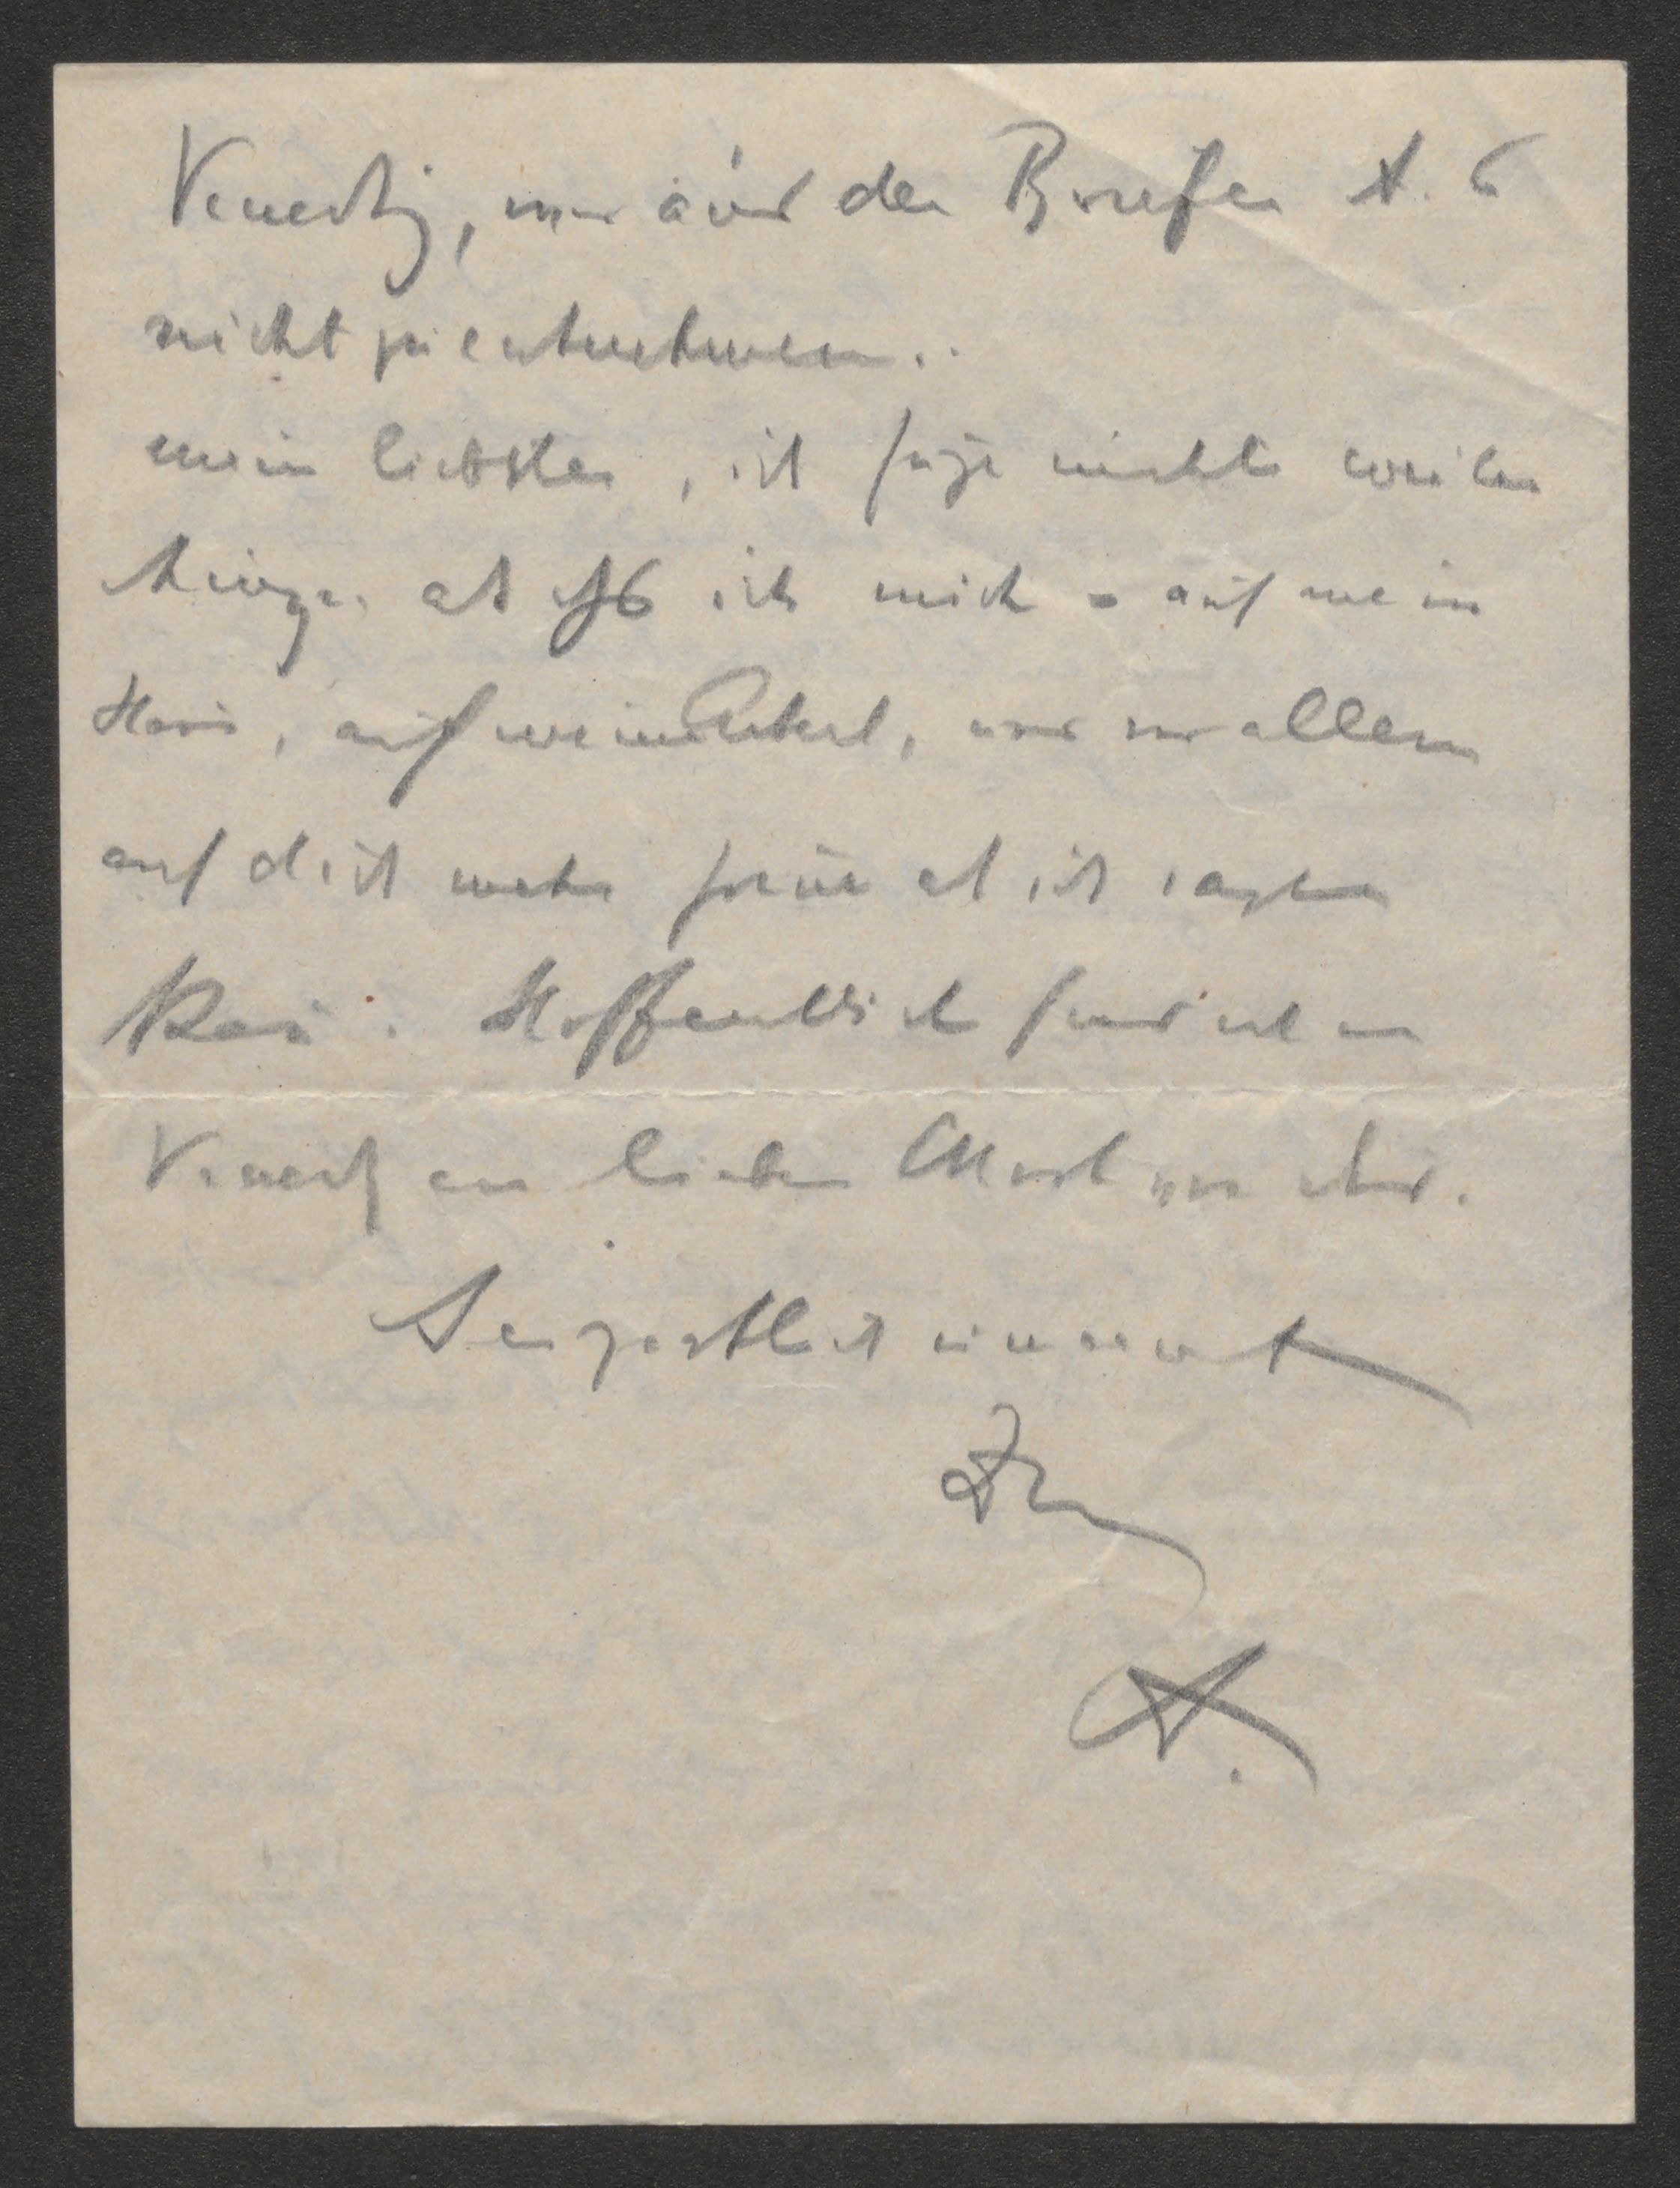 Venedig, nur aus den Briefen A. G
nicht zu entnehmen..
mein liebstes, ich füge nichts weiter
hinzu als daß ich mich auf mein
Haus, auf mein Arterl, und vor allem
auf dich mehr freue als ich sagen
kann. Hoffentlich find ich in
Venedig ein liebes Wort von dir.
Sei zärtlichst umarmt
Dein
A.